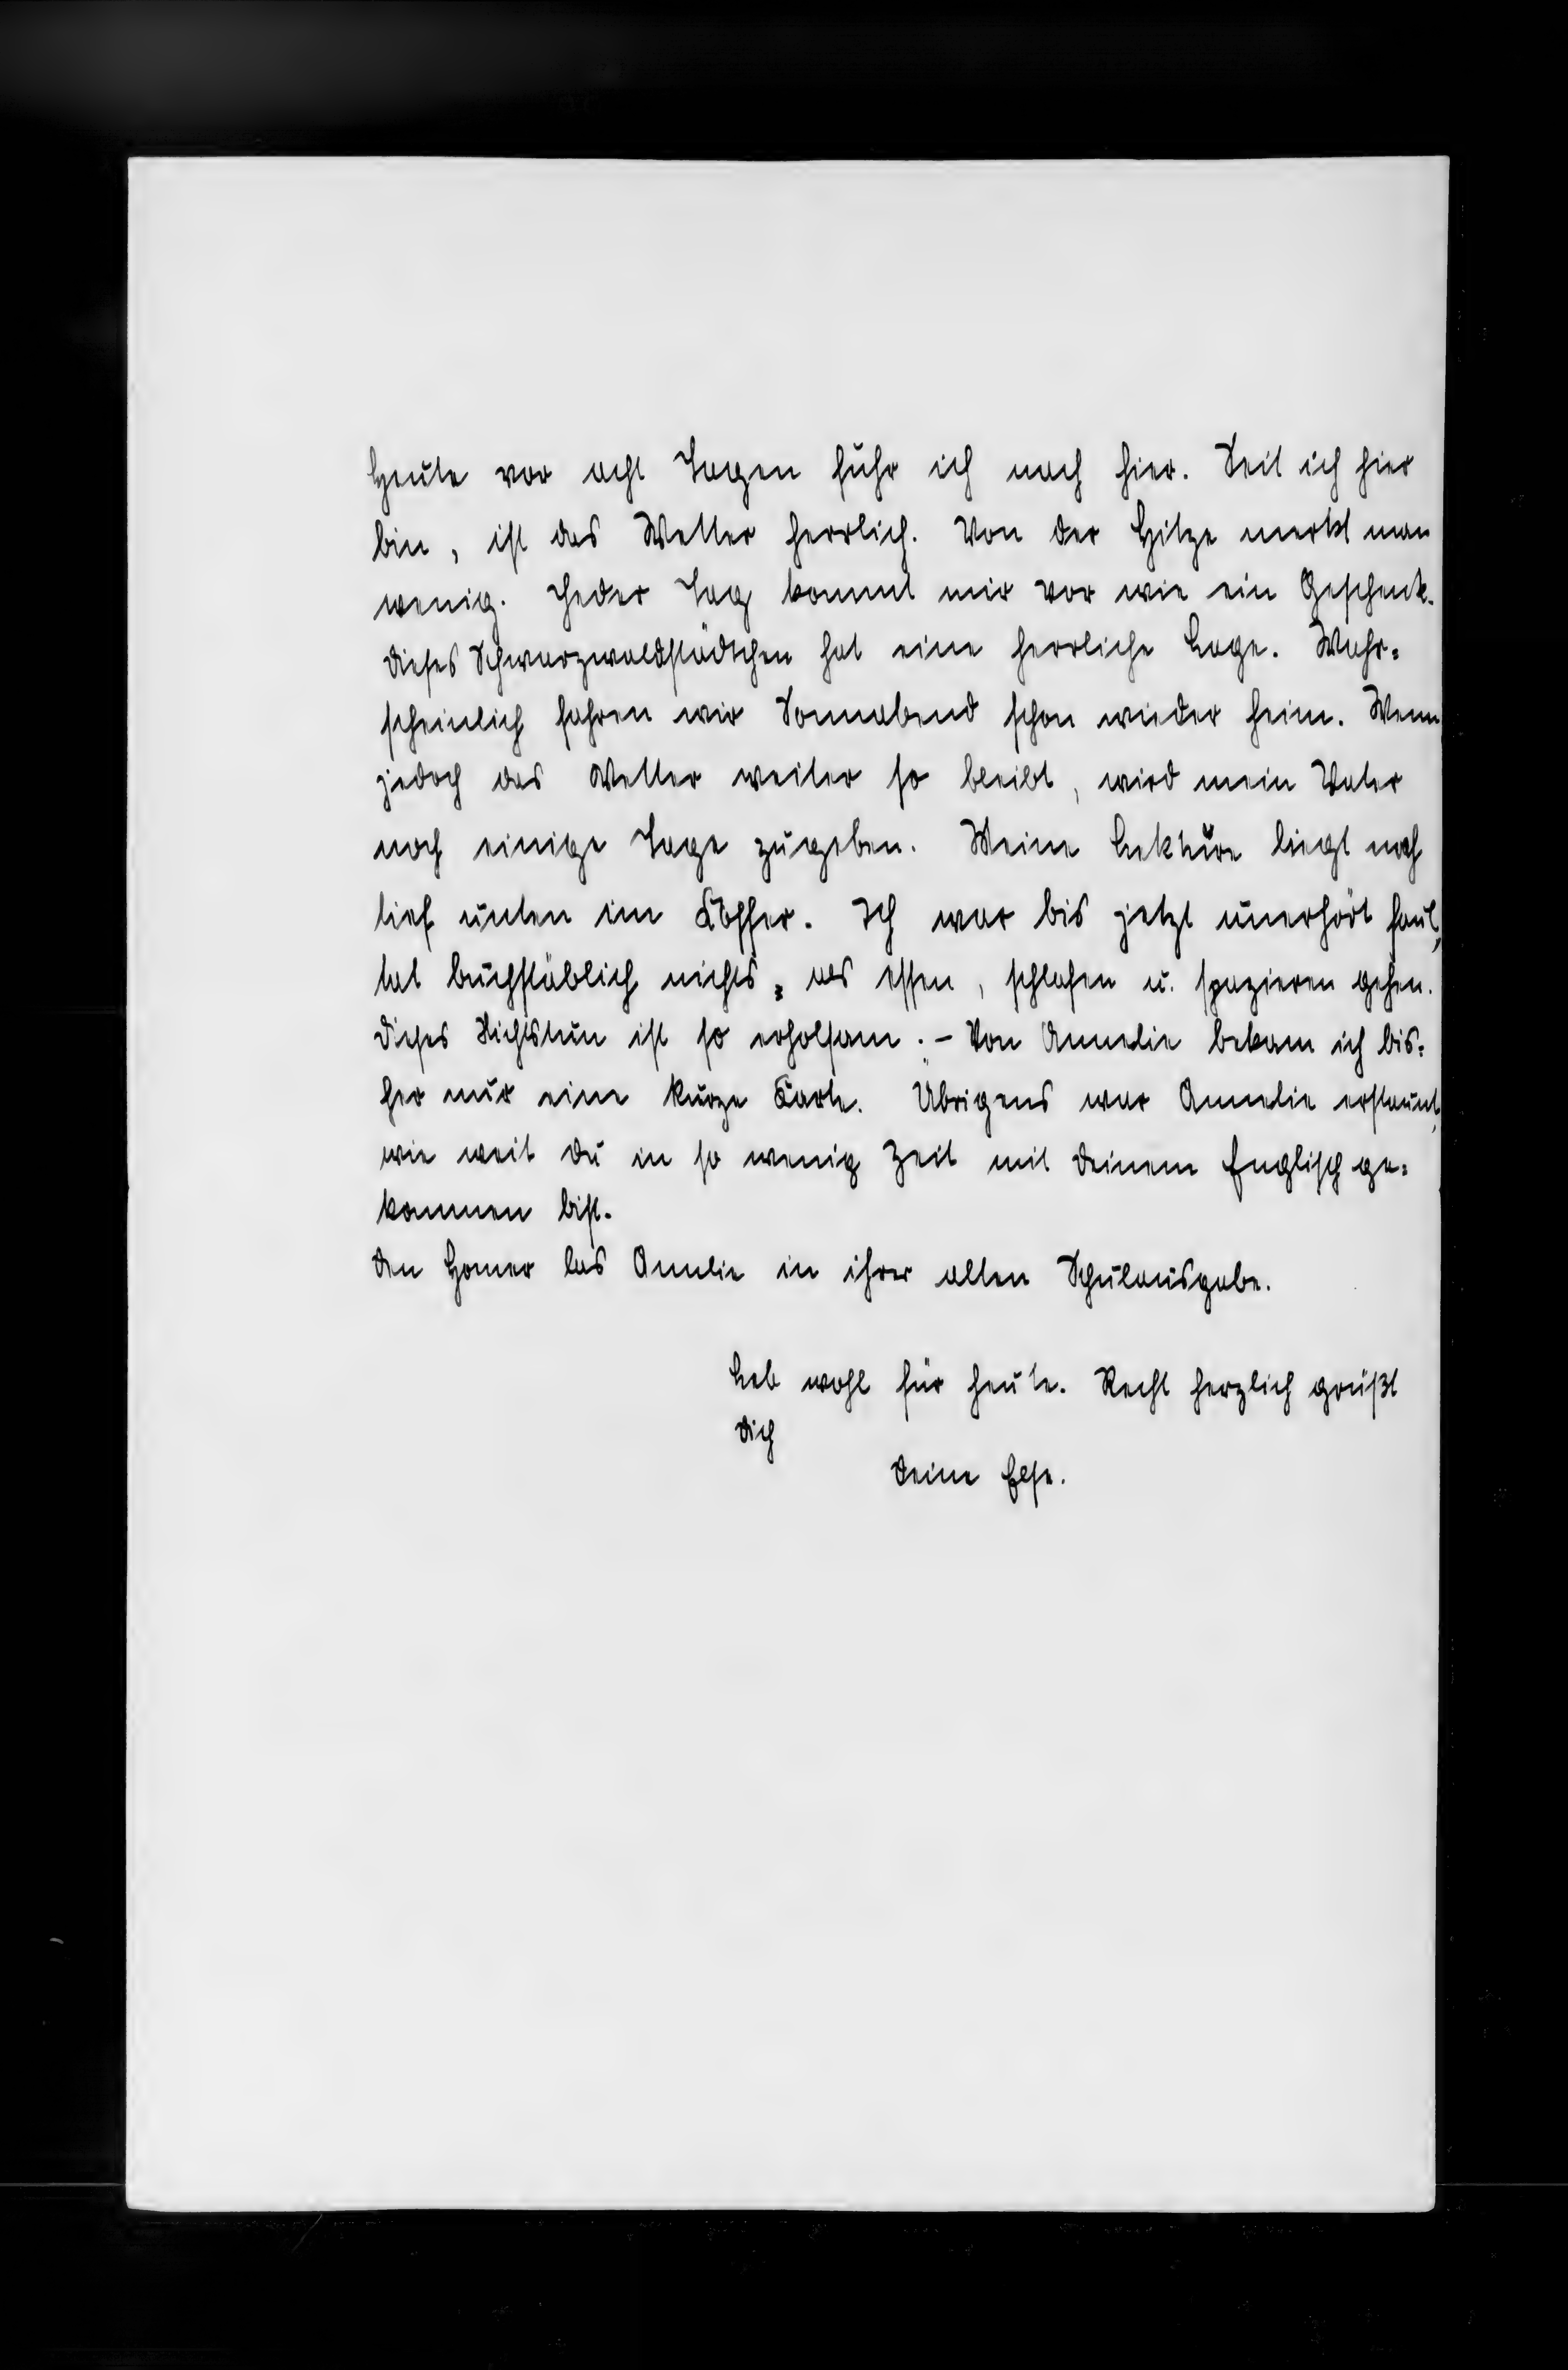 Heute vor acht Tagen fuhr ich nach hier. Seit ich hier
bin, ist das Wetter herrlich. Von der Hitze merkt man
wenig. Jeder Tag kommt mir vor wie ein Geschenk.
Dieses Schwarzwaldstädtchen hat eine herrliche Lage. Wahr=
scheinlich fahren wir Sonnabend schon wieder heim. Wenn
jedoch das Wetter weiter so bleibt, wird mein Vater
noch einige Tage zugeben. Meine Lektüre liegt noch
tief unten im Koffer. Ich war bis jetzt unerhört faul,
tat buchstäblich nichts, als essen, schlafen u. spazieren gehen.
Dieses Nichtstun ist so erholsam. – Von Annelie bekam ich bis=
her nur eine kurze Karte. Übrigens war Annelie erstaunt,
wie weit du in so wenig Zeit mit deinem Englisch ge=
kommen bist.
Den Homer las Annelie in ihrer alten Schulausgabe.
Leb wohl für heute. Recht herzlich grüßt
dich
deine Else.